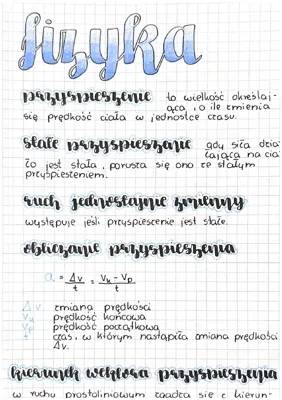 fizyka
przyspieszenie to wielkość określaj-
ąca, o ile zmienia
się prędkość ciała w jednostce czasu.
stałe przyspieszanie gdy siła dzia
łająca na cia
ło jest stała, porusza się ono ze stałym
przyspieszeniem.
ruch jednostajnie zmienny
występuje jeśli przyspieszenie jest stałe.
obliczanie przyspieszenia
a = Δv/t = Vk - Vp/t
Δv zmiana prędkości
Vk prędkość końcowa
Vp prędkość początkowa
t czas, w którym nastąpiła zmiana prędkości
Δv.
kierunek wektora przyspieszenia
w ruchu prostoliniowym zgadza się z kierun-